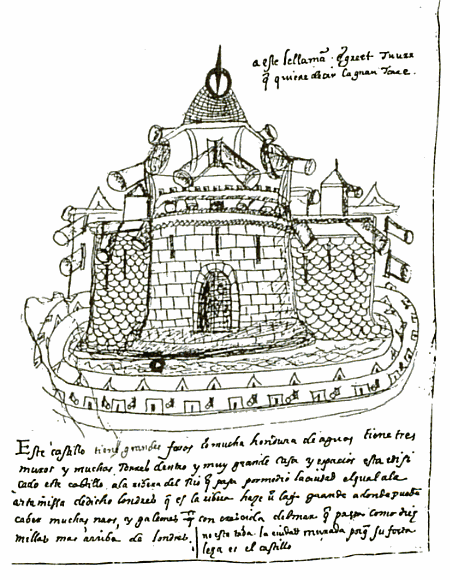 a este llaman . greet Tuura
q̃ quiere dezir la gran Torre .
Este castillo tiene grandes fosos co mucha hondura de aguas tiene tres
muros y muchas Torres dentro y muy grande casa y espacios esta edifi
cado este castillo . ala ribera del Rio q̃ pasa por medio la ciudad el qual
artemissa de dicho londres q̃ es la ribera haze grande adonde pueden
caber muchas naos, y galeras q̃ con del mar q̃ pasan como diez
millas mas arriba de londres .
no esta toda la ciudad murada porq̃ su forta
leza es el castillo